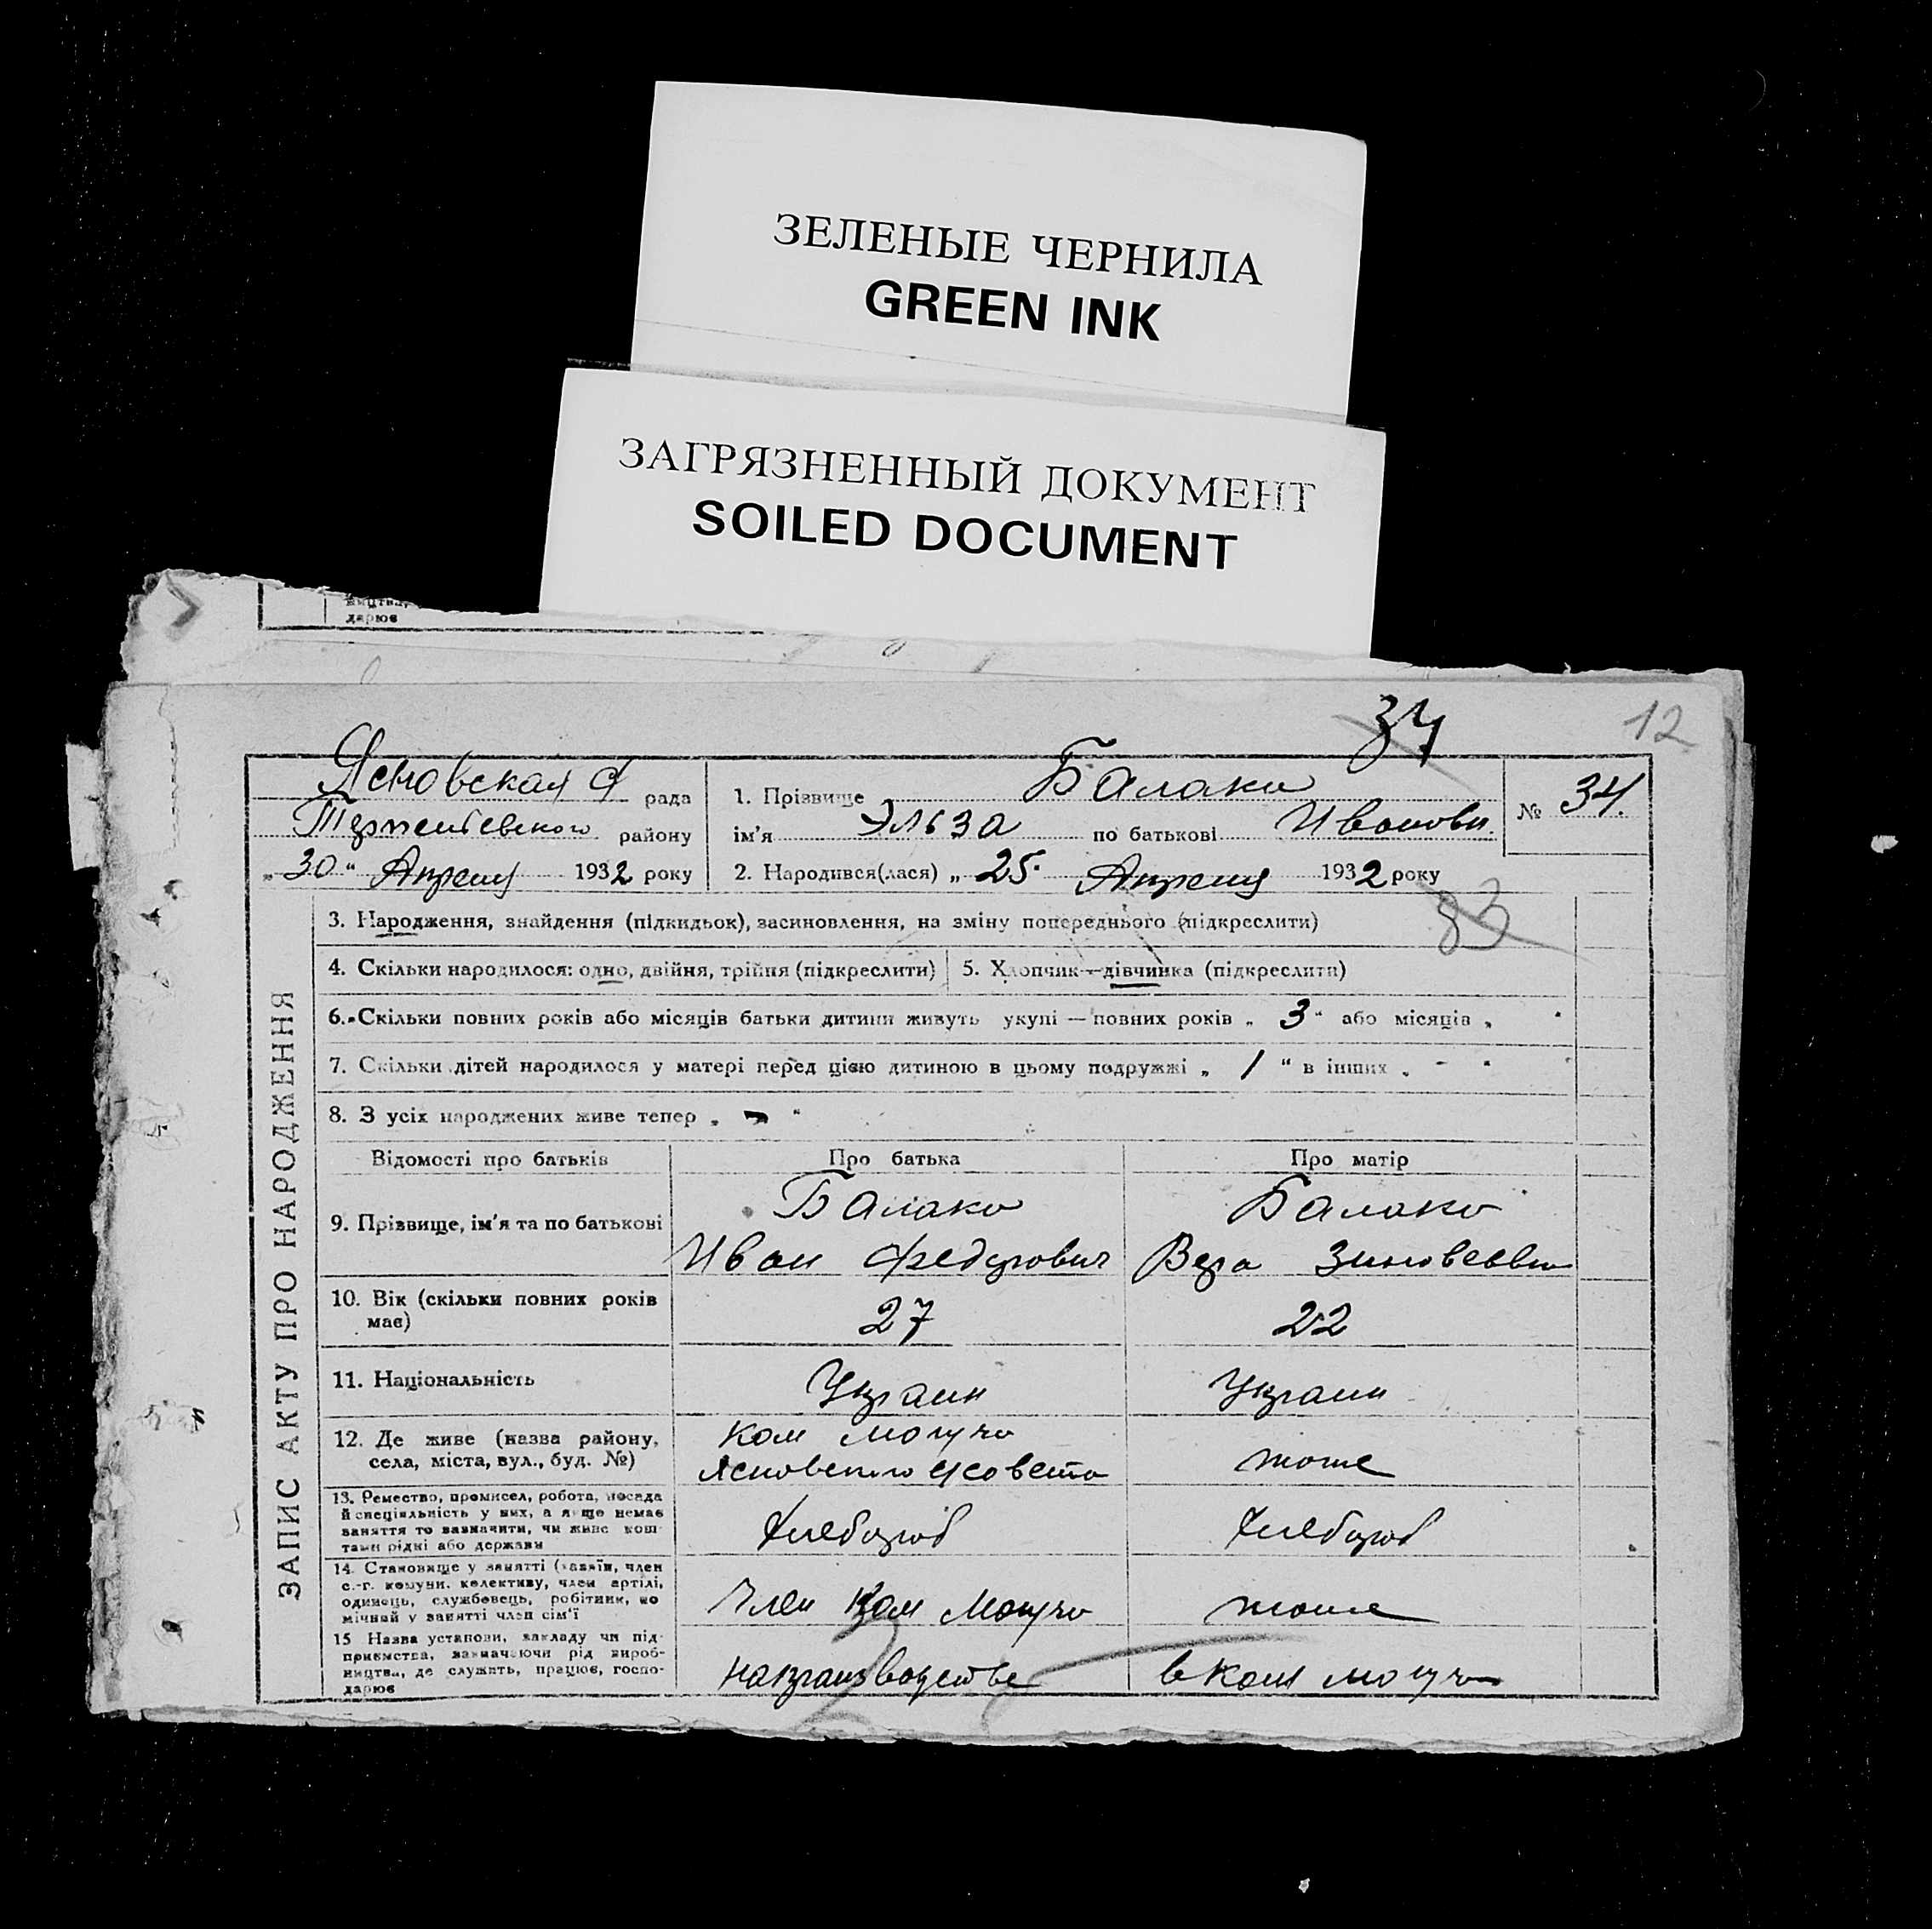 ЗЕЛЕНЫЕ ЧЕРНИЛА
GREEN INK
ЗАГРЯЗНЕННЫЙ ДОКУМЕНТ
SOILED DOCUMENT
дарює
34
12
рада
району
„30“ Апреля 1932 року
1. Прізвище Балако
ім'я Эльза по батькові Ивановн.
2. Народився(лася) „25“ Апреля 1932 року
№ 34.
83
ЗАПИС АКТУ ПРО НАРОДЖЕННЯ
3. Народження, знайдення (підкидьок), засиновлення, на зміну попереднього (підкреслити)
4. Скільки народилося: одно, двійня, трійня (підкреслити)
5. Хлопчик—дівчинка (підкреслити)
6. Скільки повних років або місяців батьки дитини живуть укупі — повних років „ 3 “ або місяців „ “
7. Скільки дітей народилося у матері перед цією дитиною в цьому подружжі „ 1 “ в інших „ - “
8. З усіх народжених живе тепер „ “
Відомості про батьків
Про батька
Про матір
9. Прізвище, ім'я та по батькові
Балако
Иван Федорович
Балако
Вера Зиновеевн
10. Вік (скільки повних років
має)
27
22
11. Національність
Украин
Украин
12. Де живе (назва району,
села, міста, вул., буд. №)
Ком Могучо
Ясновского с совета
тоже
13. Ремество, промисел, робота, посада
й спеціяльність у них, а якщо немає
заняття то зазначити, чи живе кош-
тами рідні або держави
Хлебороб
Хлебороб
14. Становище у занятті (хазяїн, член
с.-г. комуни, колективу, член артілі,
одинець, службовець, робітник, по
мічний у занятті член сім'ї
Член Ком Могучо
тоже
15 Назва установи, закладу чи під-
приємства, зазначаючи рід вироб-
ництва, де служить, працює, госпо-
дарює
на производстве
в Ком Могучо